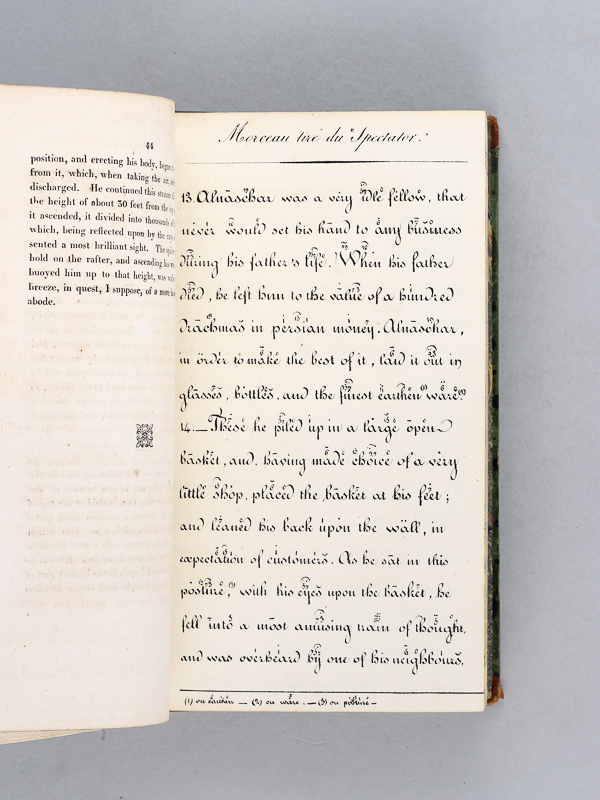 44
position, and erecting his body, began
from it, which, when taking the air,
discharged. He continued this stream
the height of about 50 feet from the
it ascended, it divided into thousands of
which, being reflected upon by the
sented a most brilliant sight. The
hold on the rafter, and ascending his
buoyed him up to that height, was
breeze, in quest, I suppose, of a more
abode.
Morceau tiré du "Spectator."
13. Alnaschar was a very idle fellow, that
never would set his hand to any business
during his father's life. When his father
died, he left him to the value of a hundred
drachmas in persian money. Alnaschar,
in order to make the best of it, laid it out in
glasses, bottles, and the finest earthen (1) ware (2)
14.—These he piled up in a large open
basket, and. having made choice of a very
little shop, placed the basket at his feet;
and leaned his back upon the wall, in
expectation of customers. As he sat in this
posture, (3) with his eyes upon the basket, he
fell into a most amusing train of thought,
and was overheard by one of his neighbours,
(1) ou earthen — (2) ou ware. — (3) ou posture —